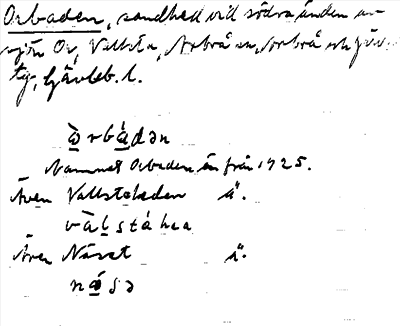 Orbaden, sandhed vid södra änden av
sjön Or, Vallsta, Arbrå sn, Arbrå och Järvsö
tg, Gävleb. l.
òrbádən
Namnet Orbaden är från 1925.
Även Vallstaheden ä.
vàlstáhea
Även Näset ä.
nǽsə